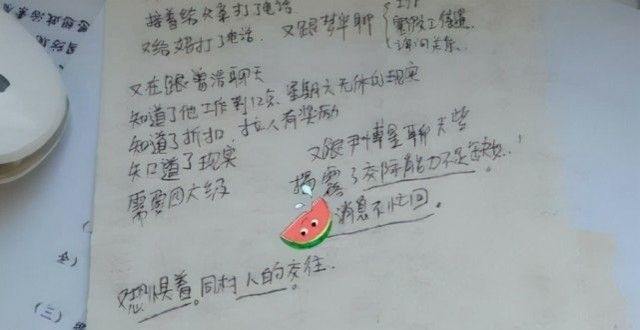 接着给父亲打了电话
又给妈打了电话. 又跟梦华聊
工作
询问关系.
又在跟曾浩聊天
知道了他工作到12点, 星期六无休的现实
知道了折扣, 拉人有奖励
知道了现实
需要四六级
又跟尹博星聊天些
揭露了交际能力不足缺处..!
消息不忙回。
又恐惧着。同村人的交往.
(三)